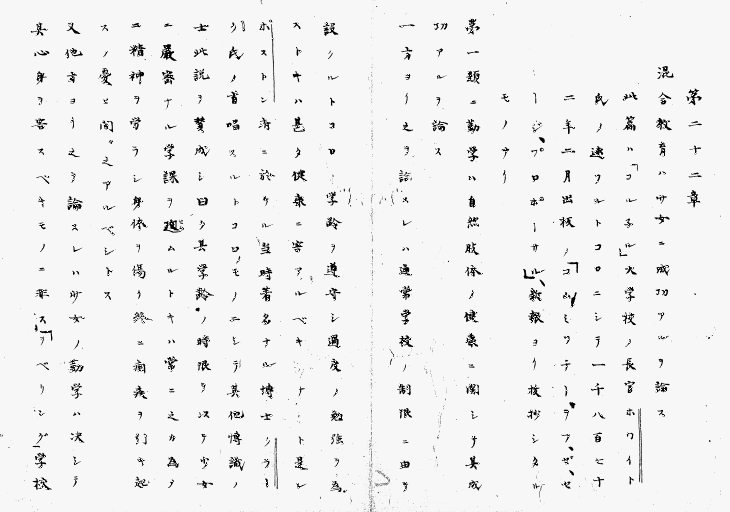 第二十二章
混合教育ハ少女ニ成功アルヲ論ス
此篇ハ「コルネル」大学校ノ長官ホワイト
氏ノ述フルトコロニシテ一千八百七十
二年二月出板ノ
プロポーサル」教報ヨリ抜抄シタル
モノナリ
第一題ニ勤学ハ自然肢体ノ健康ニ関シテ其成
功アルヲ論ス
一方ヨリ之ヲ論スレハ通常学校ノ制限ニ由テ
設クルトコロノ学齢ヲ遵守シ過度ノ勉強ヲ為
ストキハ甚タ健康ニ害アルベキナリト是レ
ボストン府ニ於ケル当時著名ナル博士クラー
ク氏ノ首唱スルトコロノモノニシテ其他博識ノ
士此説ヲ賛成シ曰ク其学齢ノ時限ヲ以テ少女
ニ厳密ナル学課ヲ ムルトキハ常ニ之カ為メ
ニ精神ヲ労ラシ身体ヲ傷リ終ニ病疾ヲ引キ起
スノ憂ヒ間之アルベシトス
又他方ヨリ之ヲ論スレハ少女ノ勤学ハ決シテ
其心身ヲ害スベキモノニ非ス 学校